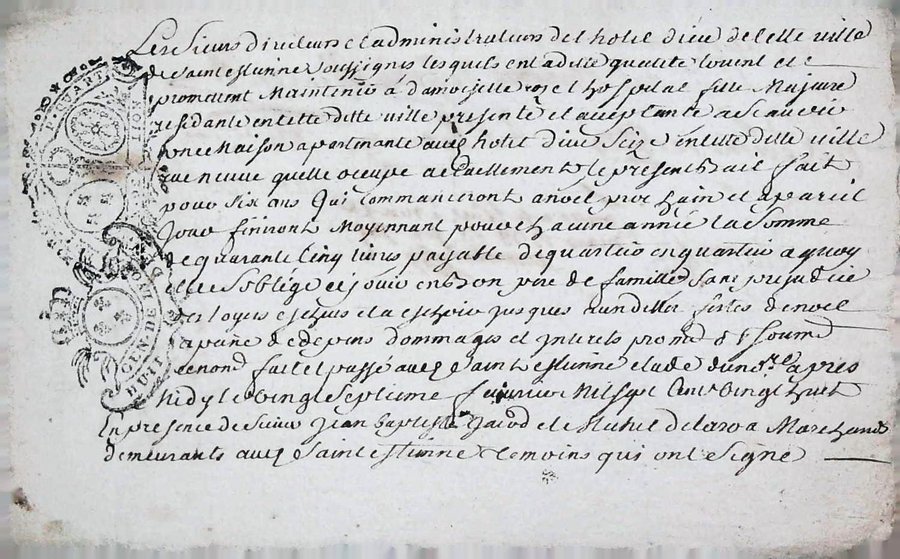 Les Sieurs directeurs et administrateurs de l hotel dieu de cette ville
de Saint estienne soussignes lesquels en ladte qualité louent et
promettent Maintenir á damoiselle L hospital fille Majeure
residante en cette ditte ville presente et aceptante a Scauoir
une Maison apartenante audt hotel dieu Size en cette ditte ville
rue neuue quelle occupe actuellement le present bail fait
pour six ans qui commanceront a noel prochain et a pareil
jour finiront Moyennant pour chacune année la Somme
de quarante Cinq liures payable de quartier en quartier a quoy
elle Soblige et jouir en bon pere de famille Sans prejudice
des loyers eschus et a eschoir jusques aux dittes festes de noel
a paine de depens dommages et interets promd &t soumd
Renond fait et passé audt Saint estienne etude du nore apres
Midy le Vingt Septieme Mil Sept Cent Vingt huit
En presence de Sieurs Jean Baptiste et Michel Marchands
demeurants audt Saint estienne temoins qui ont Signé
GEN. DE LYON
HUIT